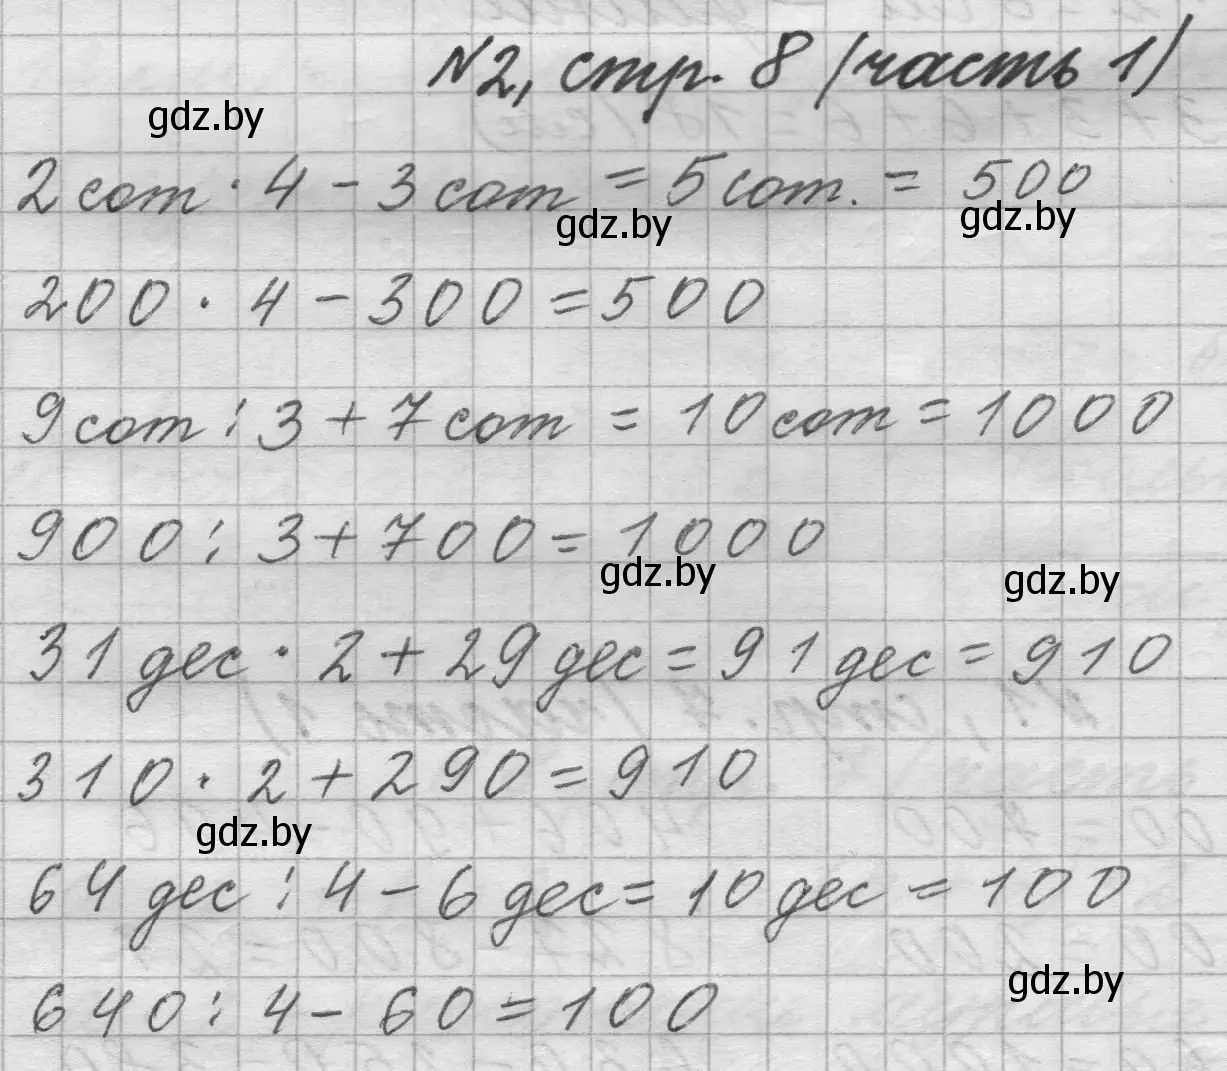 №2, стр. 8 (часть 1)
gdz.by
2 сот · 4 - 3 сот = 5 сот. = 500
gdz.by gdz.by
200 · 4 - 300 = 500
9 сот : 3 + 7 сот = 10 сот = 1000
900 : 3 + 700 = 1000
gdz.by gdz.by
31 дес · 2 + 29 дес = 91 дес = 910
310 · 2 + 290 = 910
gdz.by
64 дес : 4 - 6 дес = 10 дес = 100
gdz.by
640 : 4 - 60 = 100